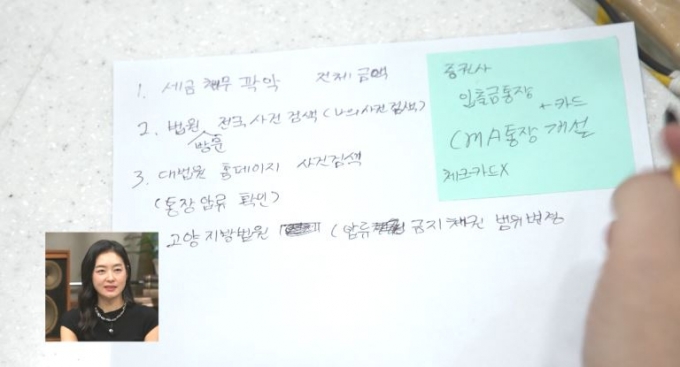 1. 세금 채무 파악 전체 금액
2. 법원 전국 사건 검색 (나의사건검색)
방문
3. 대법원 홈페이지 사건검색
(통장 압류 확인)
고양 지방법원 (압류 금지 채권 범위변경
증권사
입출금통장
← 카드
CMA통장 개설
체크카드X